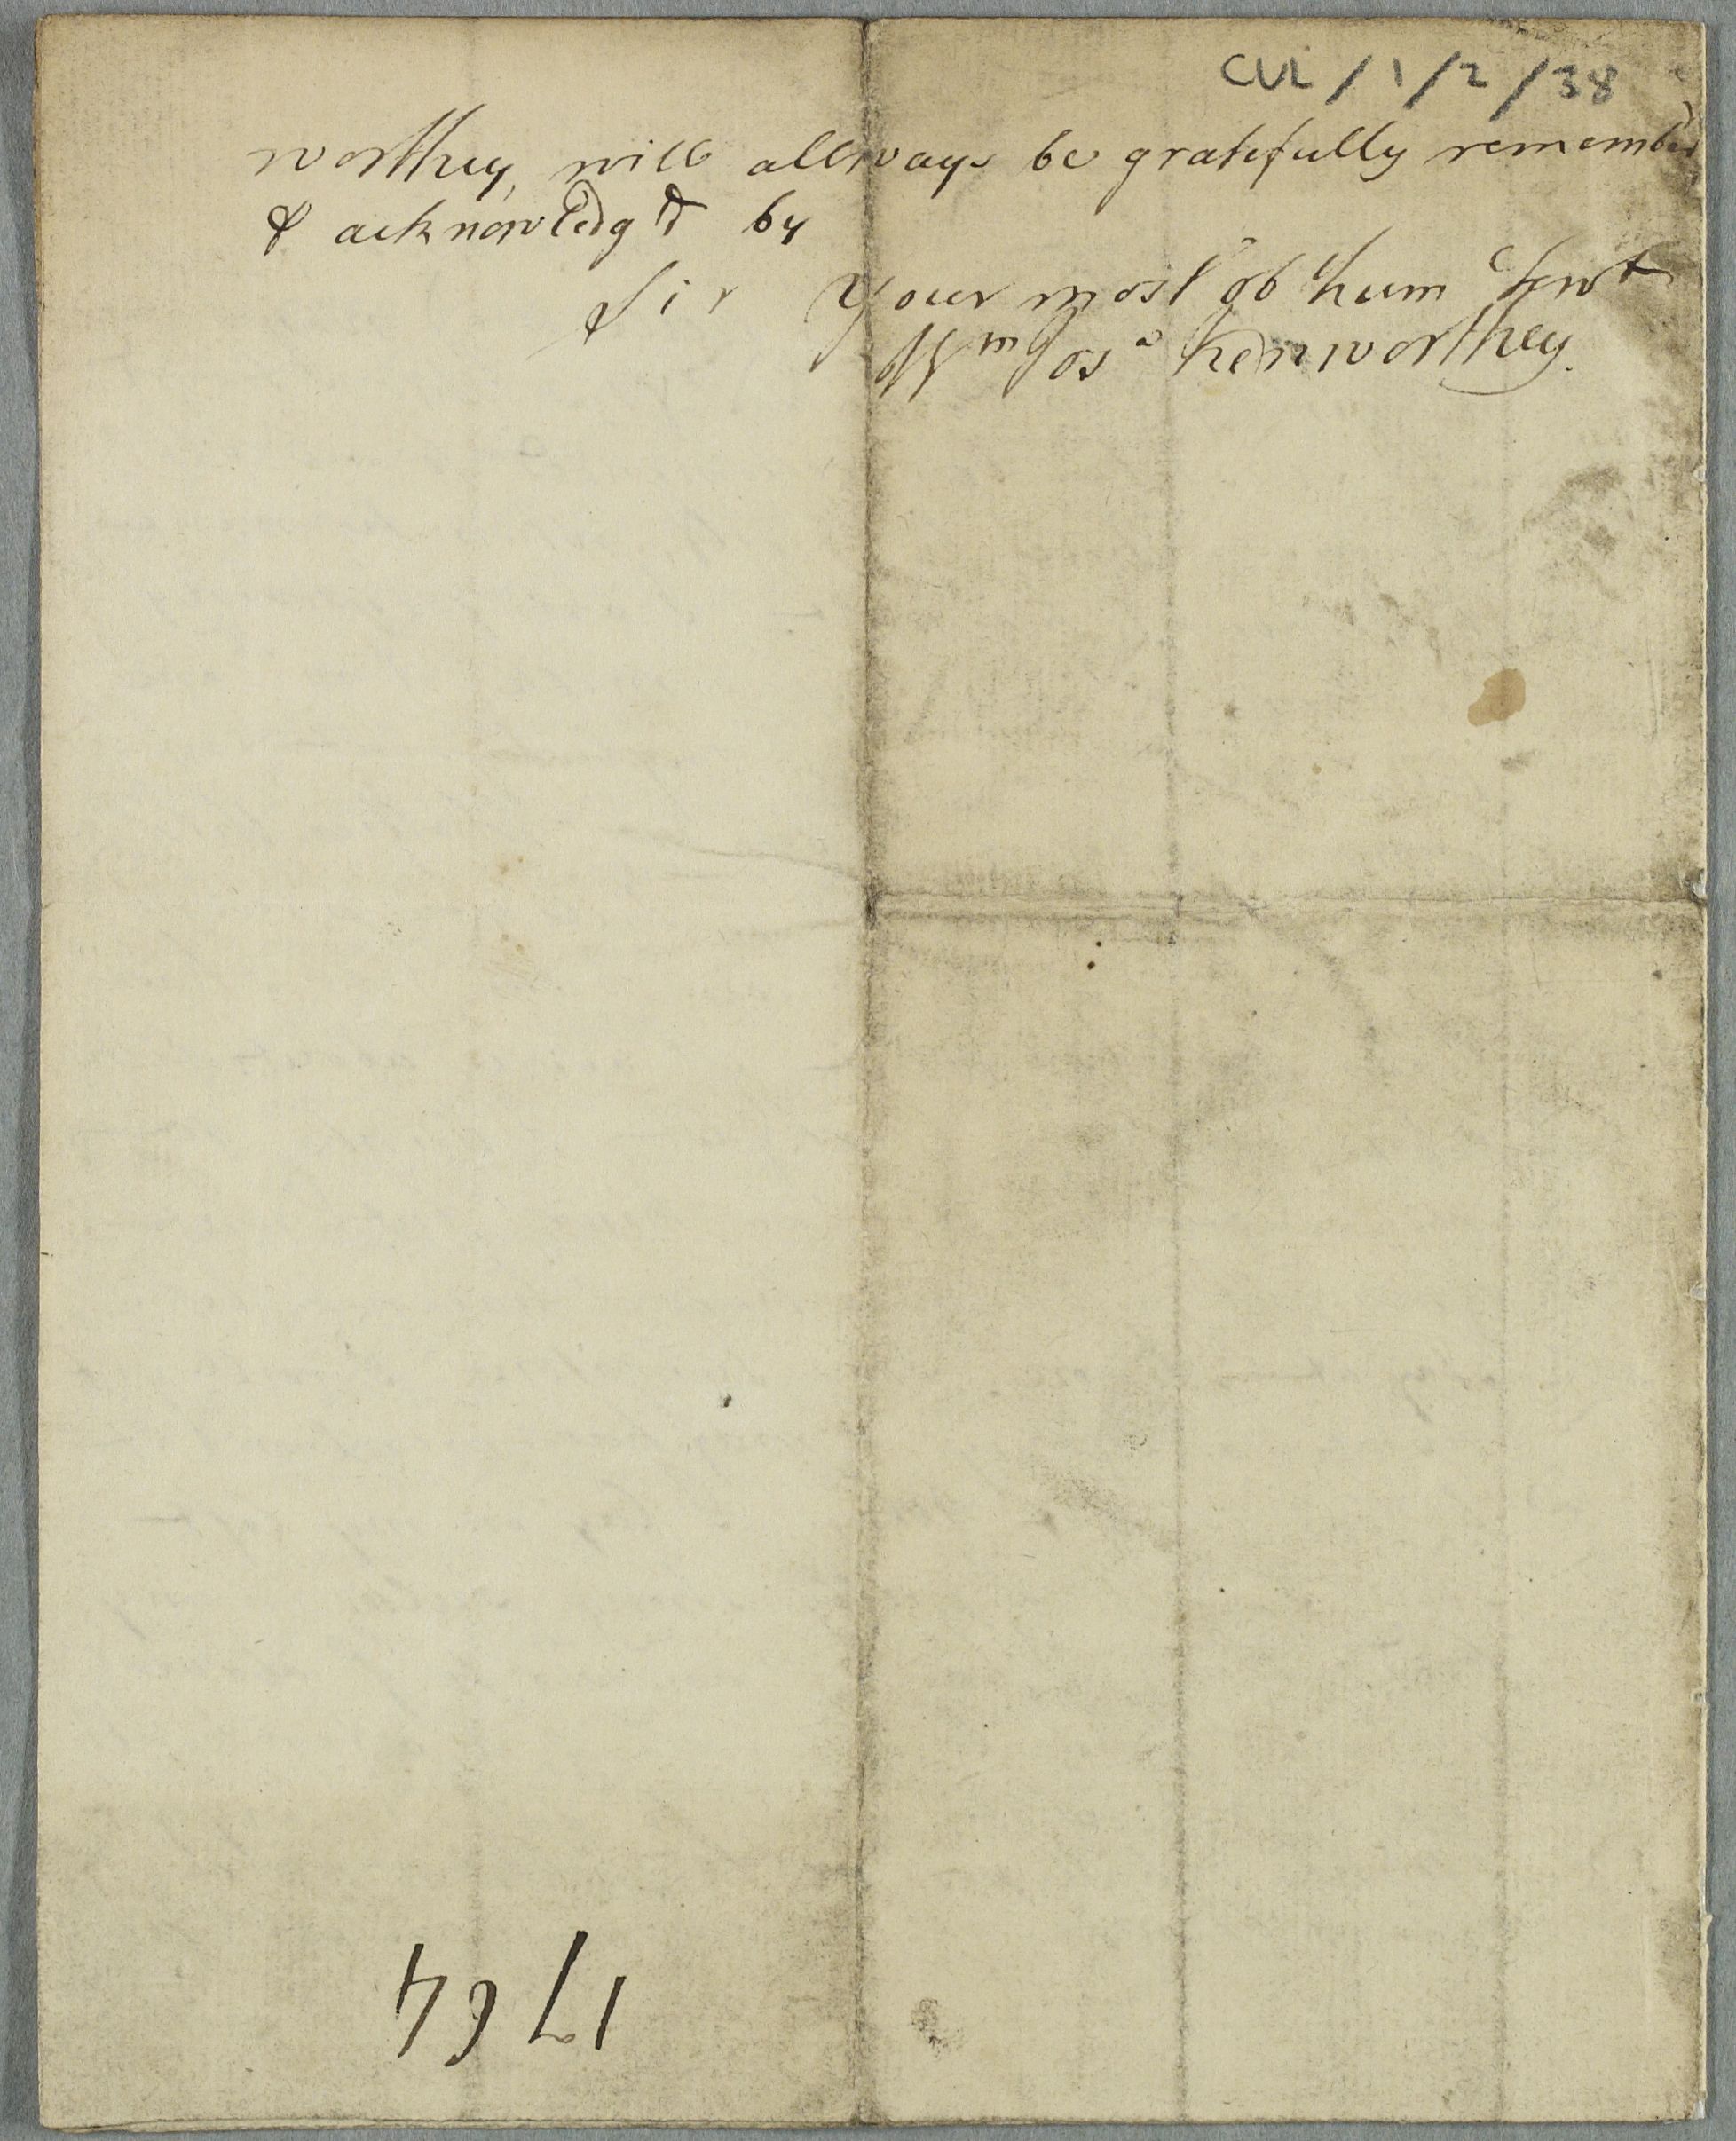 CUL/1/2/38
worthey, will allways be gratefully remembd
& acknowledg'd by
Sir Your most ob hum Servt
Wm Jos Kenworthey.
1764